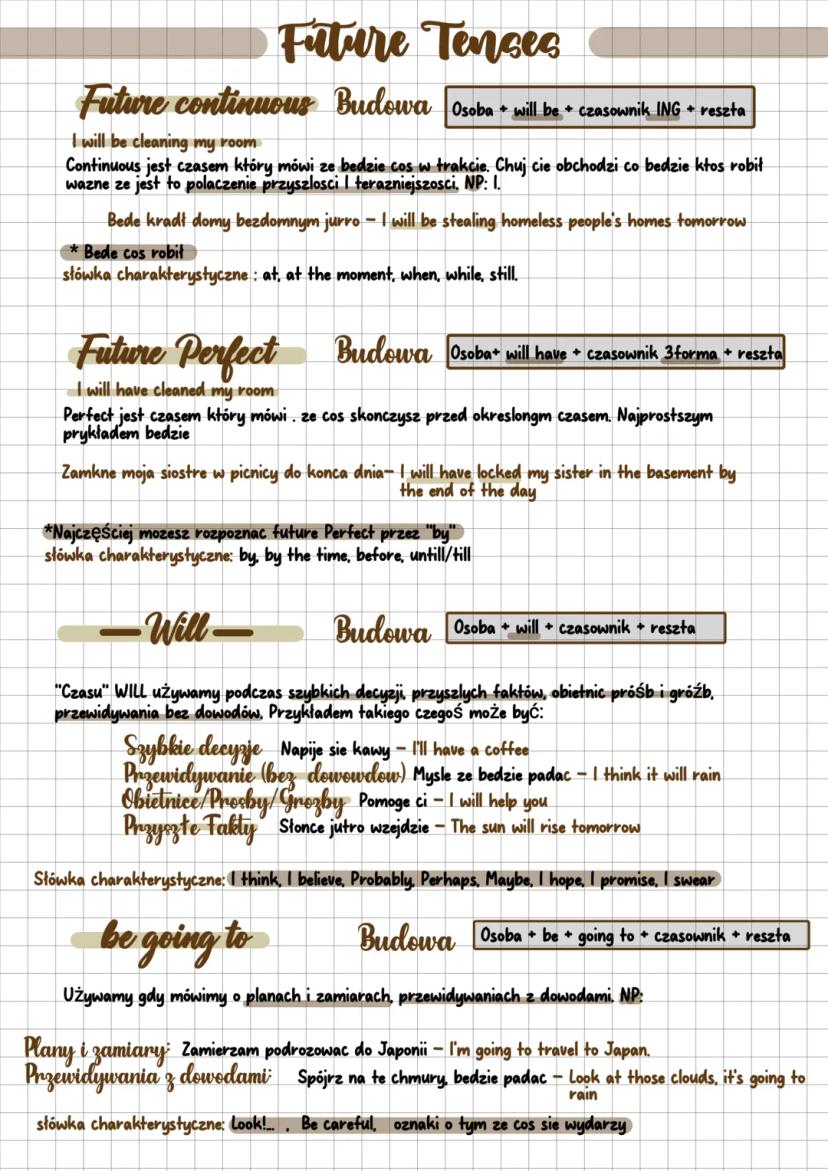 Future Tenses
Future continuous Budowa Osoba + will be + czasownik ING + reszta
I will be cleaning my room
Continuous jest czasem który mówi ze bedzie cos w trakcie. Chuj cie obchodzi co bedzie ktos robił
wazne ze jest to polaczenie przyszlosci I terazniejszosci. NP: I.
Bede kradł domy bezdomnym jurro – I will be stealing homeless people's homes tomorrow
* Bede cos robił
słówka charakterystyczne : at, at the moment, when, while, still.
Future Perfect Budowa Osoba+ will have + czasownik 3forma + reszta
I will have cleaned my room
Perfect jest czasem który mówi . ze cos skonczysz przed okreslongm czasem. Najprostszym
prykładem bedzie
Zamkne moja siostre w picnicy do konca dnia– I will have locked my sister in the basement by
the end of the day
*Najczęściej mozesz rozpoznac future Perfect przez "by"
słówka charakterystyczne: by, by the time, before, untill/till
— Will — Budowa Osoba + will + czasownik + reszta
"Czasu" WILL używamy podczas szybkich decyzji, przyszlych faktów, obietnic próśb i gróźb,
przewidywania bez dowodów. Przykładem takiego czegoś może być:
Szybkie decyzje Napije sie kawy – I'll have a coffee
Przewidywanie (bez dowowdow) Mysle ze bedzie padac – I think it will rain
Obietnice/Prosby/Grozby Pomoge ci – I will help you
Przyszłe Fakty Słonce jutro wzejdzie – The sun will rise tomorrow
Słówka charakterystyczne: I think, I believe, Probably, Perhaps, Maybe, I hope, I promise, I swear
be going to Budowa Osoba + be + going to + czasownik + reszta
Używamy gdy mówimy o planach i zamiarach, przewidywaniach z dowodami. NP:
Plany i zamiary: Zamierzam podrozowac do Japonii – I'm going to travel to Japan.
Przewidywania z dowodami: Spójrz na te chmury, bedzie padac – Look at those clouds, it's going to
rain
słówka charakterystyczne: Look!... , Be careful, oznaki o tym ze cos sie wydarzy